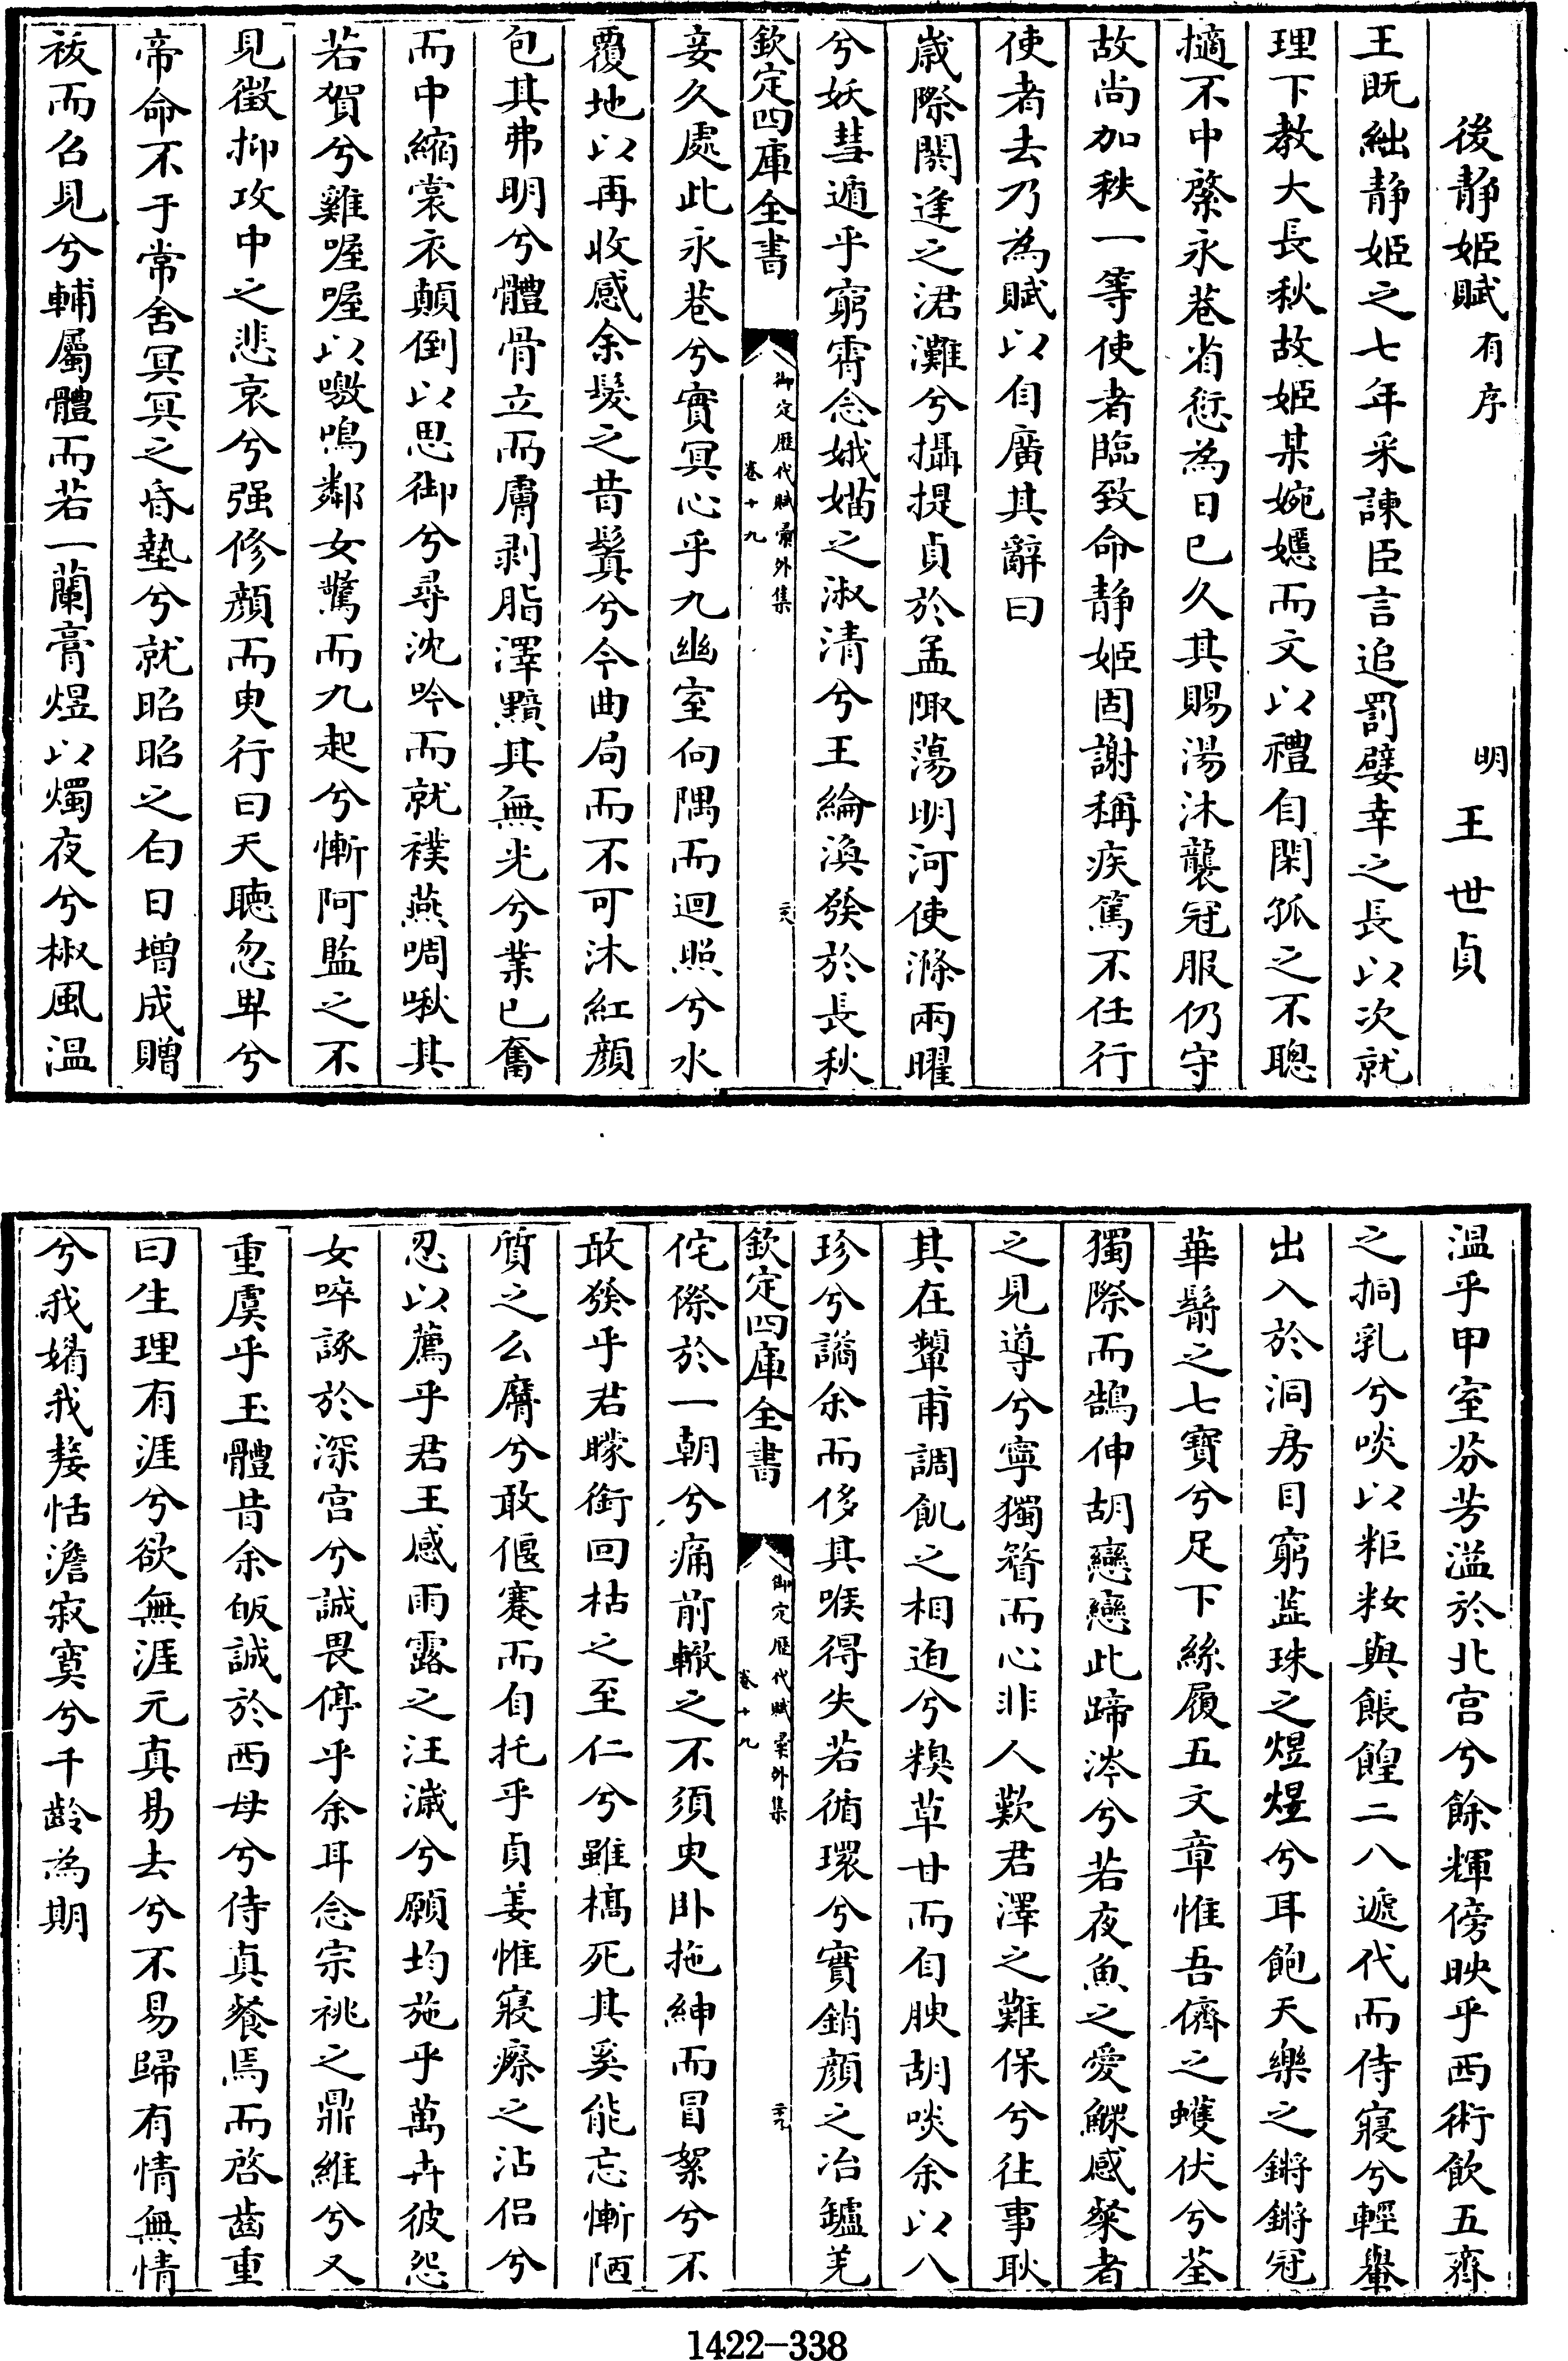 後静姬賦有序　明　王世貞
王既絀静姬之七年采諫臣言追罰嬖幸之長以次就
理下教大長秋故姬某婉嫕而文以禮自閑孤之不聰
擿不中綮永巷省愆為日已久其賜湯沐襲冠服仍守
故尚加秩一等使者臨致命静姬固謝稱疾篤不任行
使者去乃為賦以自廣其辭曰
歲際閼逢之涒灘兮攝提貞於孟陬蕩明河使滌兩曜
兮妖彗遁乎窮霄念娥媌之淑清兮王綸渙發於長秋
欽定四庫全書
御定歷代賦彙外集
卷十九
二六
妾久處此永巷兮實冥心乎九幽室向隅而迴照兮水
覆地以再收感余髮之昔鬒兮今曲局而不可沐紅顏
包其弗明兮體骨立而膚剥脂澤黷其無光兮業已奮
而中縮裳衣顛倒以思御兮尋沈吟而就襆燕啁啾其
若賀兮雞喔喔以噭鳴鄰女驚而九起兮慚阿監之不
見徵抑攻中之悲哀兮强修顏而臾行曰天聽忽卑兮
帝命不于常舍冥冥之昏墊兮就昭昭之白日增成贈
袚而召見兮輔屬體而若一蘭膏煜以燭夜兮椒風溫
溫乎甲室芬芳溢於北宫兮餘輝傍映乎西術飲五齊
之挏乳兮啖以粔籹與餦餭二八遞代而侍寢兮輕轝
出入於洞房目窮藍珠之煜煜兮耳飽天樂之鏘鏘冠
華鬋之七寶兮足下絲履五文章惟吾儕之蠖伏兮荃
獨際而鵠伸胡戀戀此蹄涔兮若夜魚之愛鰥感粲者
之見導兮寧獨瞀而心非人歎君澤之難保兮往事耿
其在顰甫調飢之相迫兮糗草甘而自腴胡啖余以八
珍兮譎余而侈其喉得失若循環兮實銷顏之冶鑪羌
侘傺於一朝兮痛前轍之不須臾卧拖紳而冒絮兮不
敢發乎君矇銜回枯之至仁兮雖槁死其奚能忘慚陋
質之么膺兮敢偃蹇而自托乎貞姜惟寢瘵之沾侣兮
忍以薦乎君王感雨露之汪濊兮願均施乎萬卉彼怨
女啐諑於深宫兮誠畏停乎余耳念宗祧之鼎維兮又
重虞乎玉體昔余皈誠於西母兮侍真餐焉而啓齒重
曰生理有涯兮欲無涯元真易去兮不易歸有情無情
兮我婿我媝恬澹寂寞兮千齡為期
欽定四庫全書
御定歷代賦彙外集
卷十九
二九
1422-338